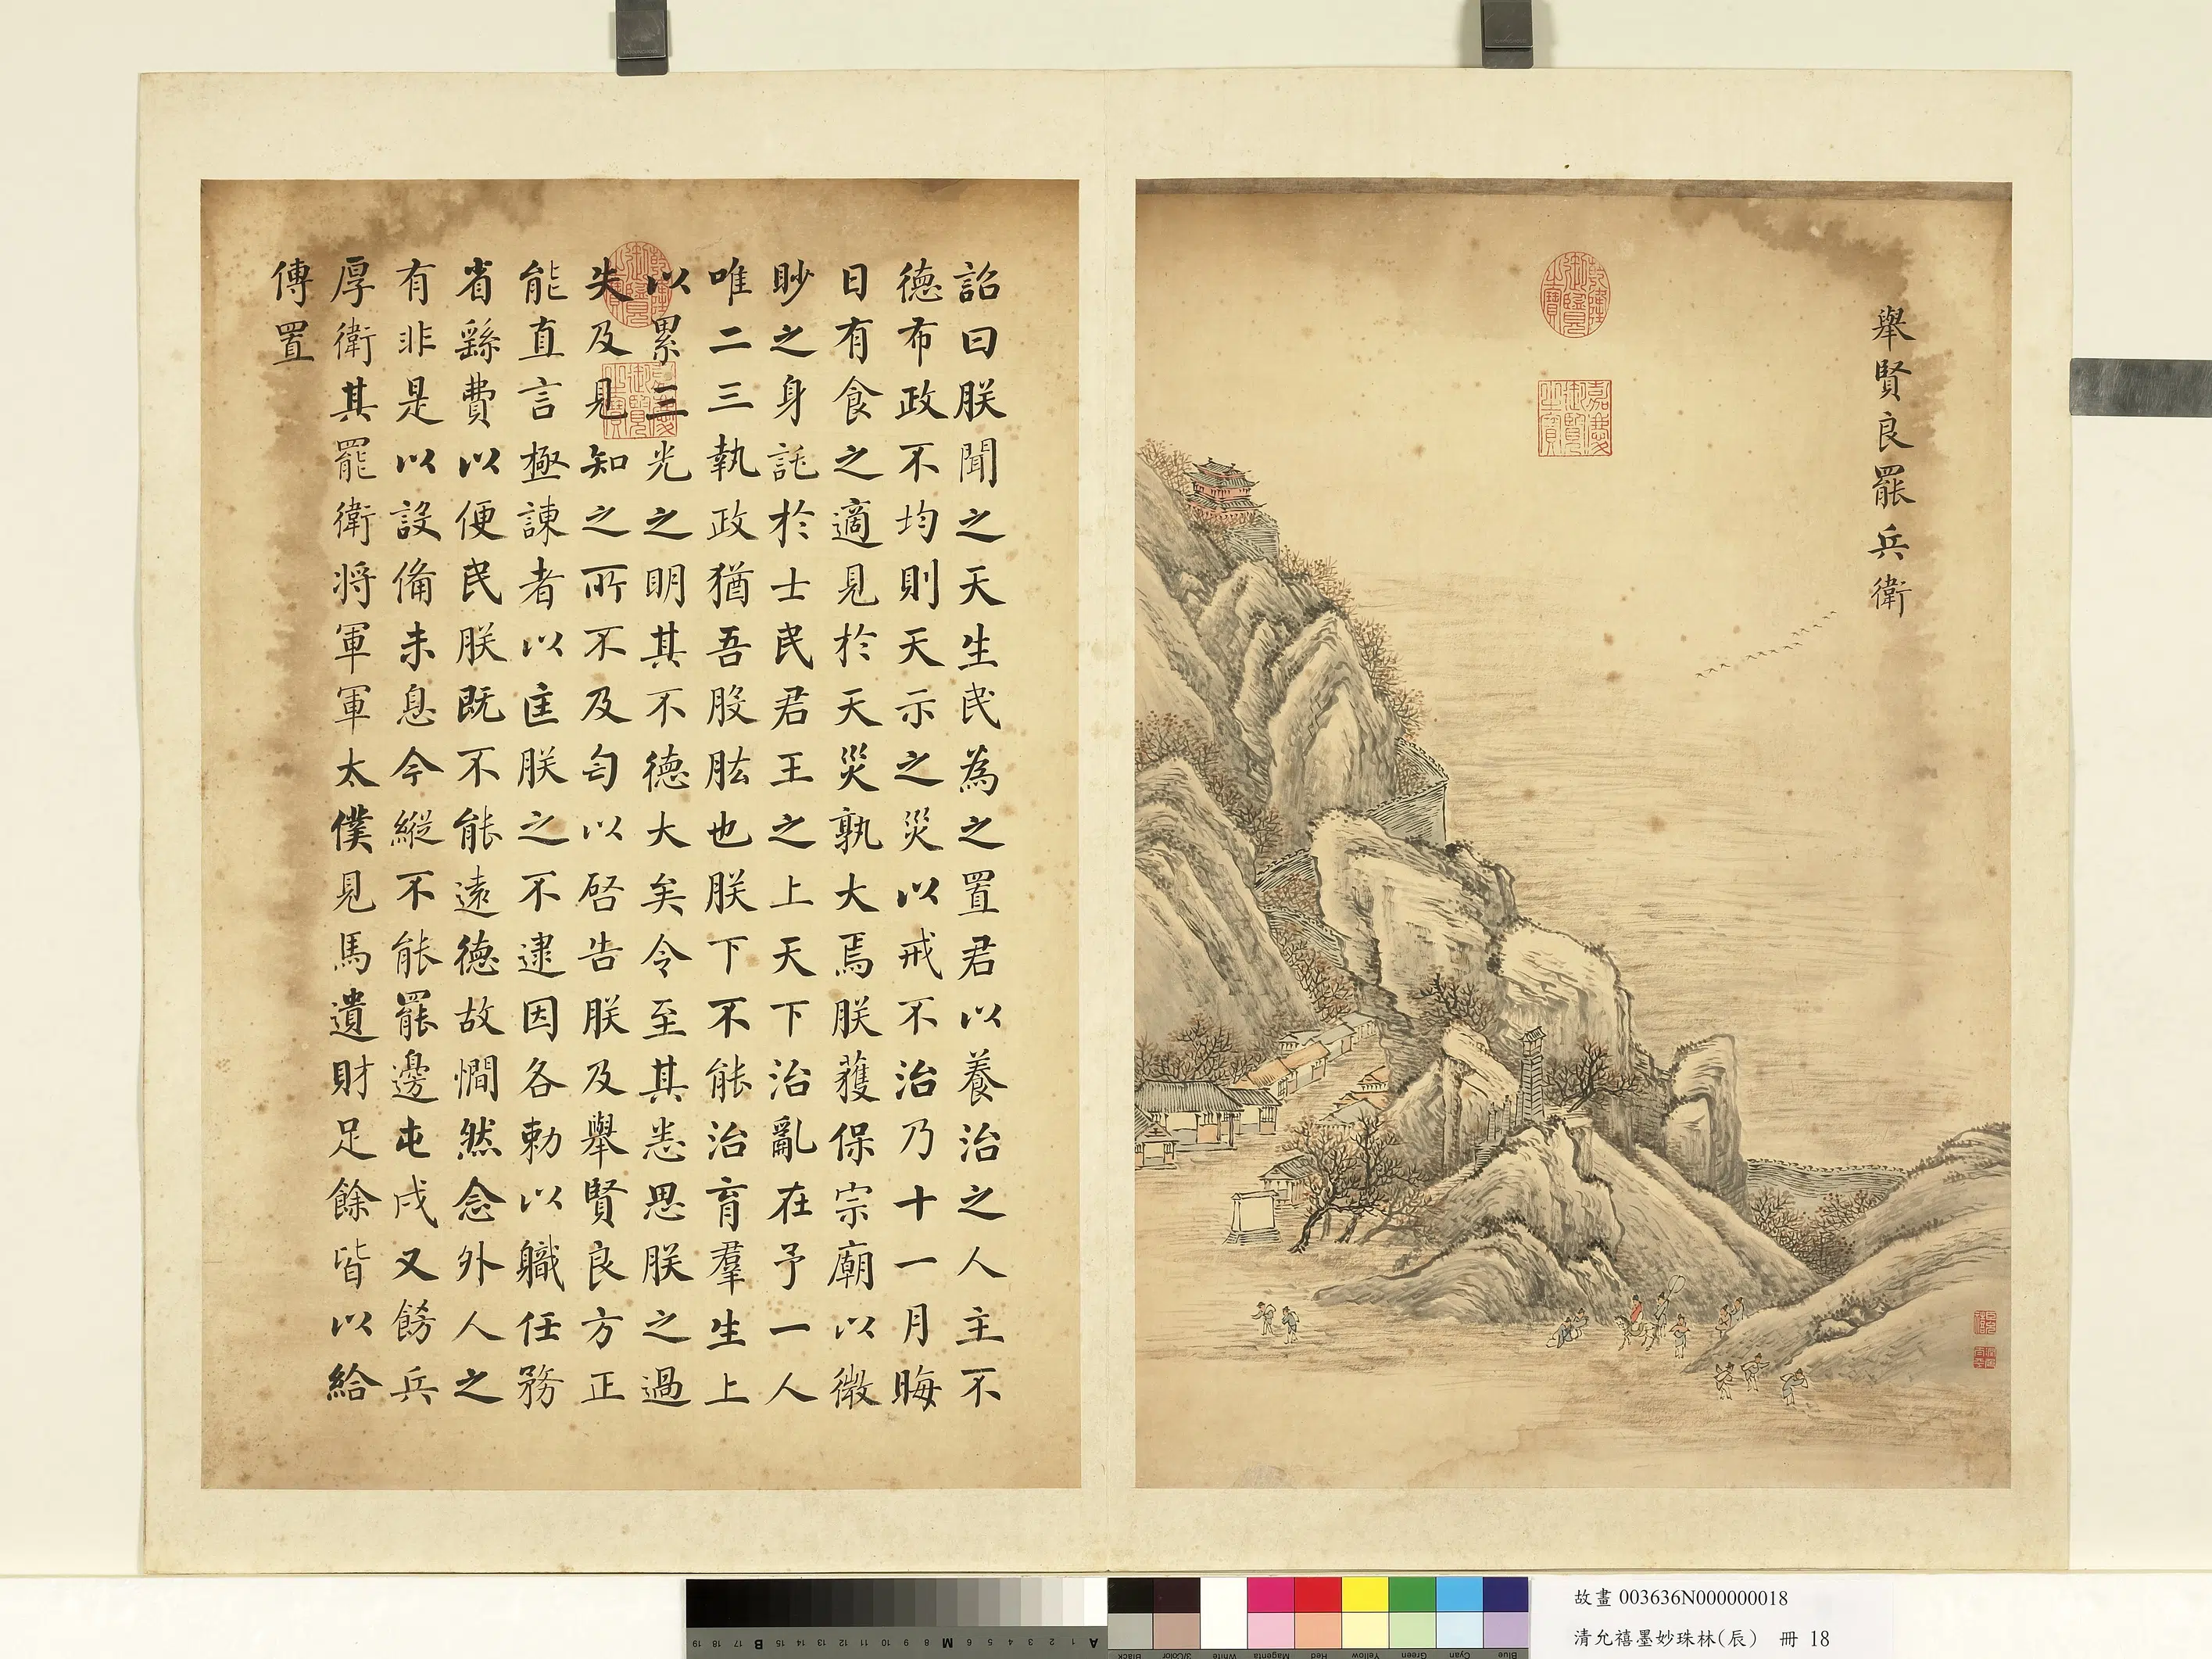 舉賢良罷兵衛
乾隆御覽之寶
嘉慶御覽之寶
詔曰朕聞之天生民為之置君以養治之人主不
德布政不均則天示之災以戒不治乃十一月晦
日有食之適見於天災孰大焉朕獲保宗廟以微
眇之身託於士民君王之上天下治亂在予一人
唯二三執政猶吾股肱也朕下不能治育羣生上
以累三光之明其不德大矣令至其悉思朕之過
失及見知之所不及匄以启告朕及舉賢良方正
能直言極諫者以匡朕之不逮因各勅以職任務
省繇費以便民朕既不能遠德故憪然念外人之
有非是以設備未息今縱不能罷邊屯戍又飭兵
厚衛其罷衛將軍軍太僕見馬遺財足餘皆以給
傳置
乾隆御覽之寶
嘉慶御覽之寶
A 1 2 3 4 5 6 M 8 9 10 11 12 13 14 15 B 17 18 19
Blue Cyan Green Yellow Red Magenta White 3/Color Black
故畫 003636N000000018
清允禧墨妙珠林(辰) 冊 18